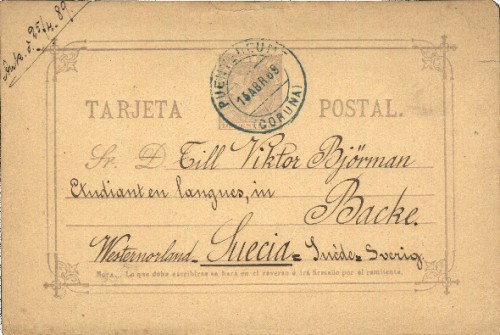 Ank. d. 25/4. 89.
PUENTEDEUME
15 ABR 89
(CORUÑA)
TARJETA POSTAL.
Sr. D. Till Viktor Björman
Etudiant en langues, in
Backe.
Westernorland - Suecia = Suède = Sverig.
Nota.... Lo que debe escribirse se hará en el reverso é irá firmado por el remitente.